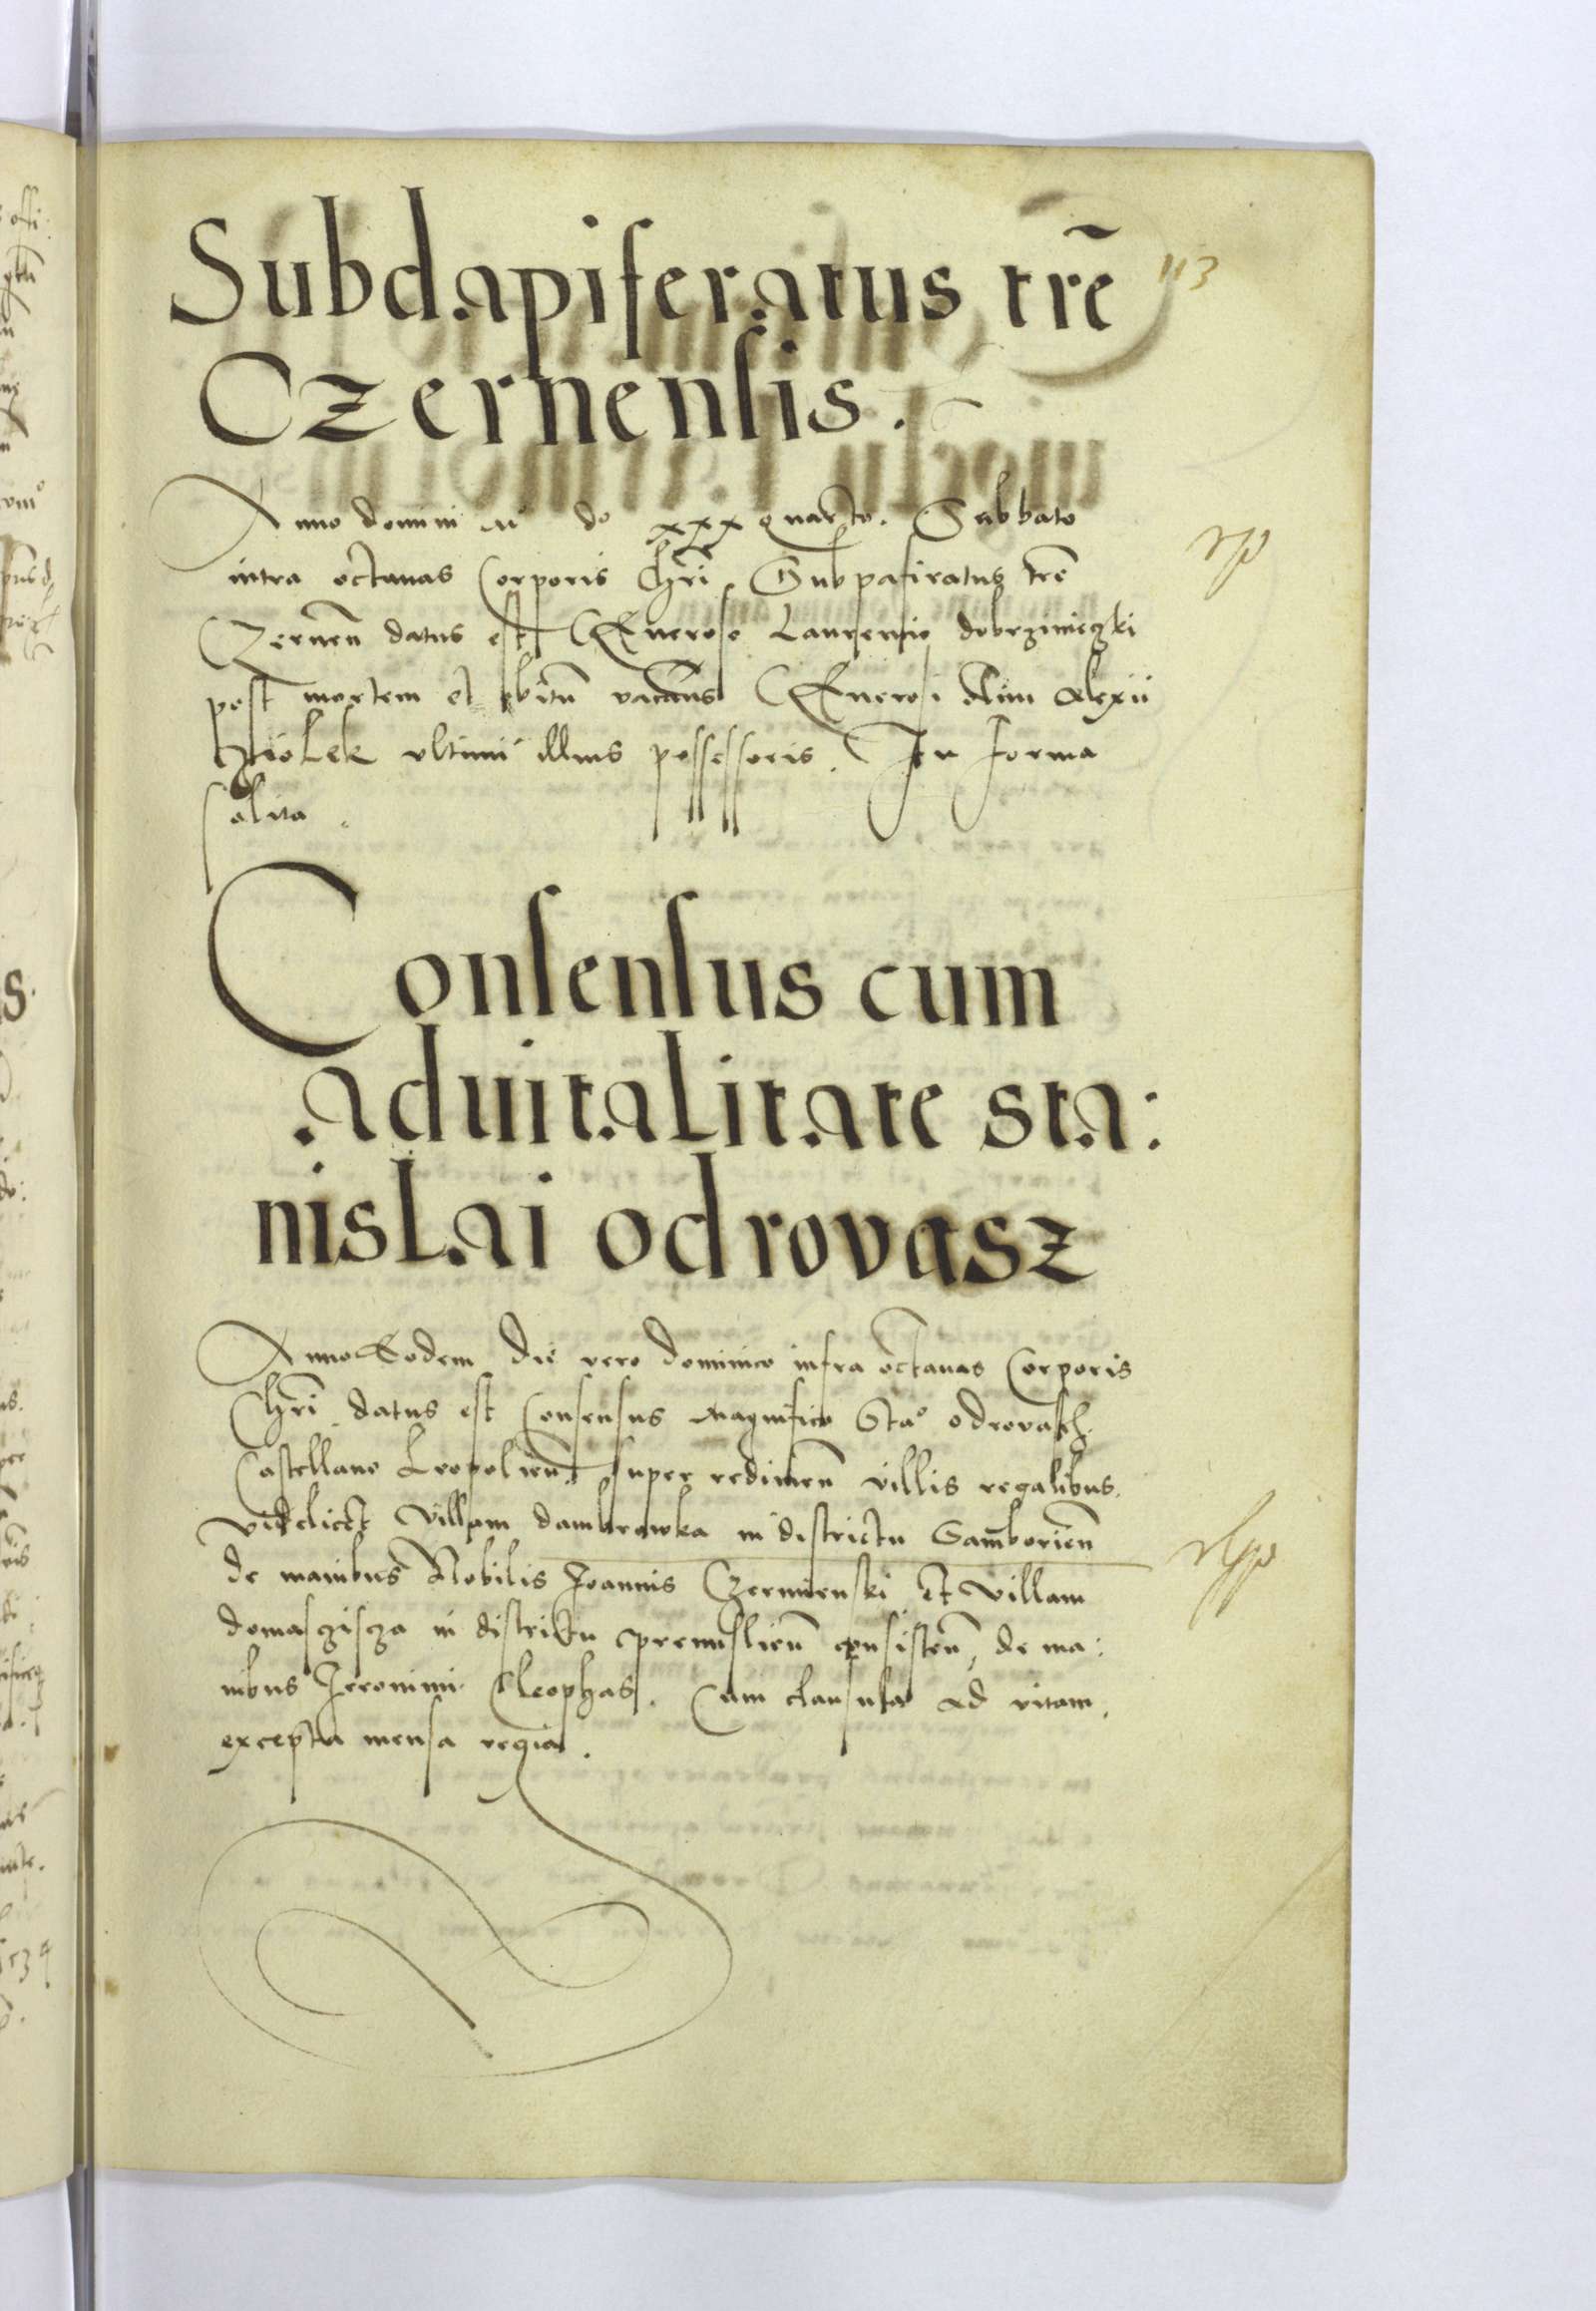 Subdapiferatus trē 113
Czernensis.
Anno domini M do xxx quarto. Sabbato
intra octauas Corporis Chri. Subpafiratus trē
Czernēn datus est Generoso Laurencio dobrzinieczki
post mortem et obitū vacans Generosi olim Alexii
ultimi illius possessoris. In forma
solita.
Consensus cum
aduitalitate sta:
nislai odrovasz
Anno Eodem die vero dominico infra octauas Corporis
Chri datus est Consensus Magnifico Stao odrovasch
Castellano Leopolien. super redimen villis regalibus.
videlicet villam dambrowka in districtu Samborien
de manibus Nobilis Joannis Czermienski et villam
domaschischa in districtu premislien consisten, de ma:
nibus Jeronimi Cleophas. Cum clausula ad vitam,
excepta mensa regia.